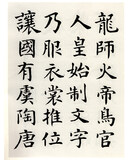 龍師火帝鳥官
人皇始制文字
乃服衣裳推位
讓國有虞陶唐